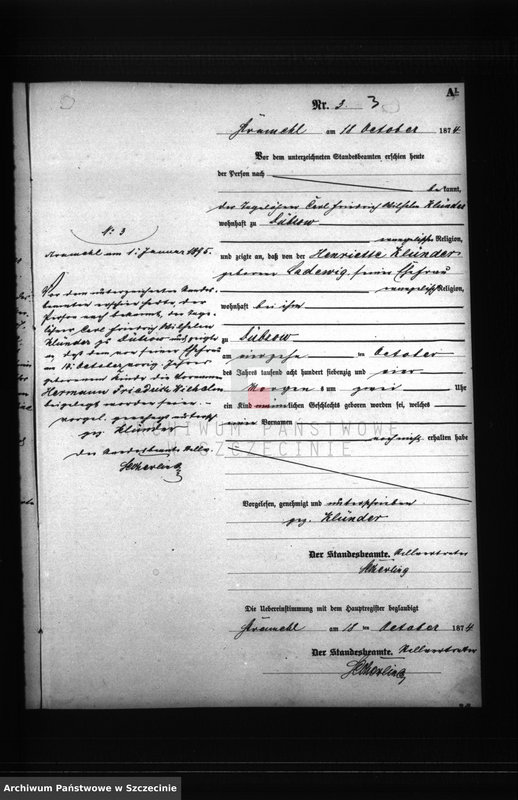 A1.
Nr. 3. 3
Drameḥl am 18 October 1874
Vor dem unterzeichneten Standesbeamten erschien heute
der Person nach
be kannt,
der Tagelöhner Carl Friedrich Wilhelm Klünder
wohnhaft zu Dübsow
evangelischer Religion,
und zeigte an, daß von der Henriette Klünder
geborenen Ladewig seiner Ehefrau
evangelischer Religion,
wohnhaft bei ihm
zu Dübsow
am vierzehn ten October
des Jahres tausend acht hundert siebenzig und vier
Morgens um zwei Uhr
ein Kind männlichen Geschlechts geboren worden sei, welches
einen Vornamen
noch nicht erhalten habe
Vorgelesen, genehmigt und unterschrieben
gez. Klünder
Der Standesbeamte. Stellvertreter
Scherling
Die Uebereinstimmung mit dem Hauptregister beglaubigt
am 18 ten October 1874
Der Standesbeamte. Stellvertreter
Scherling
No. 3
am 1. Januar 1875.
Vor dem unterzeichneten Standes-
beamten erschien heute, der
Person nach bekannt, der Tage-
löhner Carl Friedrich Wilhelm
Klünder zu Dübsow und zeigte
an, daß dem von seiner Ehefrau
am 14. October vorig. Jahres
geborenen Kinde die Vornamen
Hermann Friedrich Wilhelm
beigelegt worden seien.
vorgel. genehmigt unterschr.
gez. Klünder
Der Standesbeamte. Stellv.
Scherling
ARCHIWUM PAŃSTWOWE
W SZCZECINIE
Archiwum Państwowe w Szczecinie